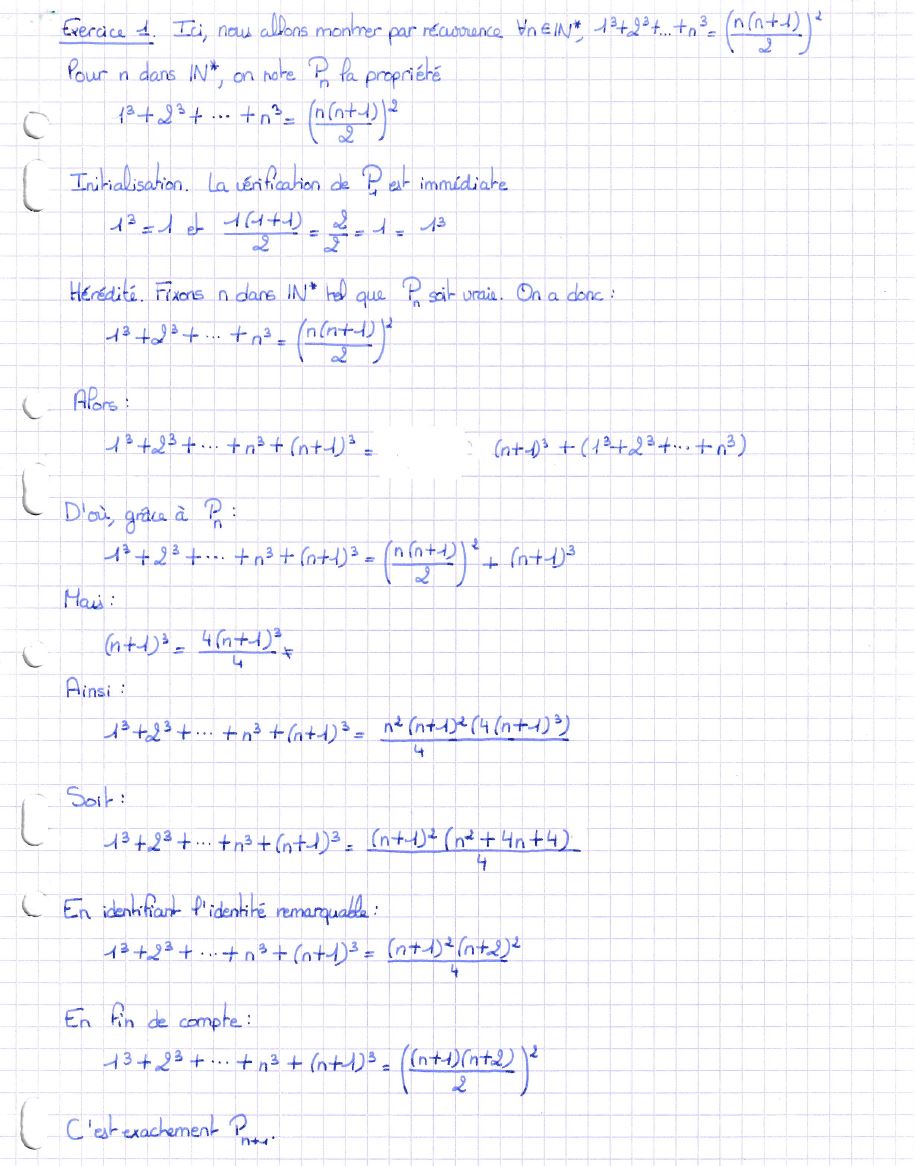 Exercice 1. Ici, nous allons montrer par récurrence ∀n∈ℕ*, 1³+2³+...+n³ = (n(n+1)/2)²
Pour n dans ℕ*, on note Pₙ la propriété
1³+2³+...+n³ = (n(n+1)/2)²
Initialisation. La vérification de P₁ est immédiate
1³=1 et 1(1+1)/2 = 2/2 = 1 = 1³
Hérédité. Fixons n dans ℕ* tel que Pₙ soit vraie. On a donc :
1³+2³+...+n³ = (n(n+1)/2)²
Alors :
1³+2³+...+n³+(n+1)³ = (n+1)³+(1³+2³+...+n³)
D'où, grâce à Pₙ :
1³+2³+...+n³+(n+1)³ = (n(n+1)/2)² + (n+1)³
Mais :
(n+1)³ = 4(n+1)³/4.
Ainsi :
1³+2³+...+n³+(n+1)³ = n²(n+1)²(4(n+1)³)/4
Soit :
1³+2³+...+n³+(n+1)³ = (n+1)²(n²+4n+4)/4
En identifiant l'identité remarquable :
1³+2³+...+n³+(n+1)³ = (n+1)²(n+2)²/4
En fin de compte :
1³+2³+...+n³+(n+1)³ = ((n+1)(n+2)/2)²
C'est exactement Pₙ₊₁.